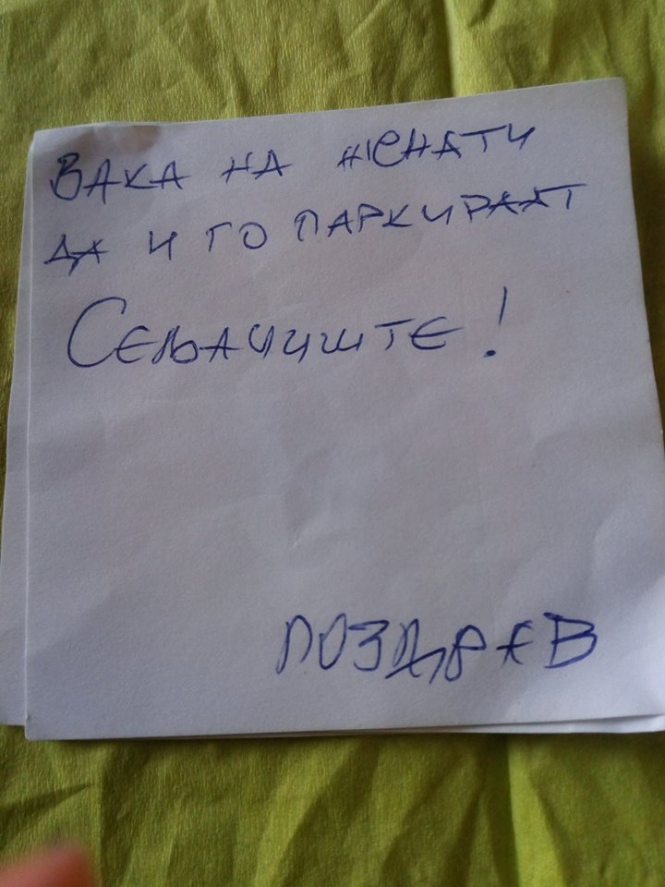 ВАКА НА ЖЕНАТИ
ДА И ГО ПАРКИРААТ
СЕЉАЧИШТЕ!
ПОЗДРАВ